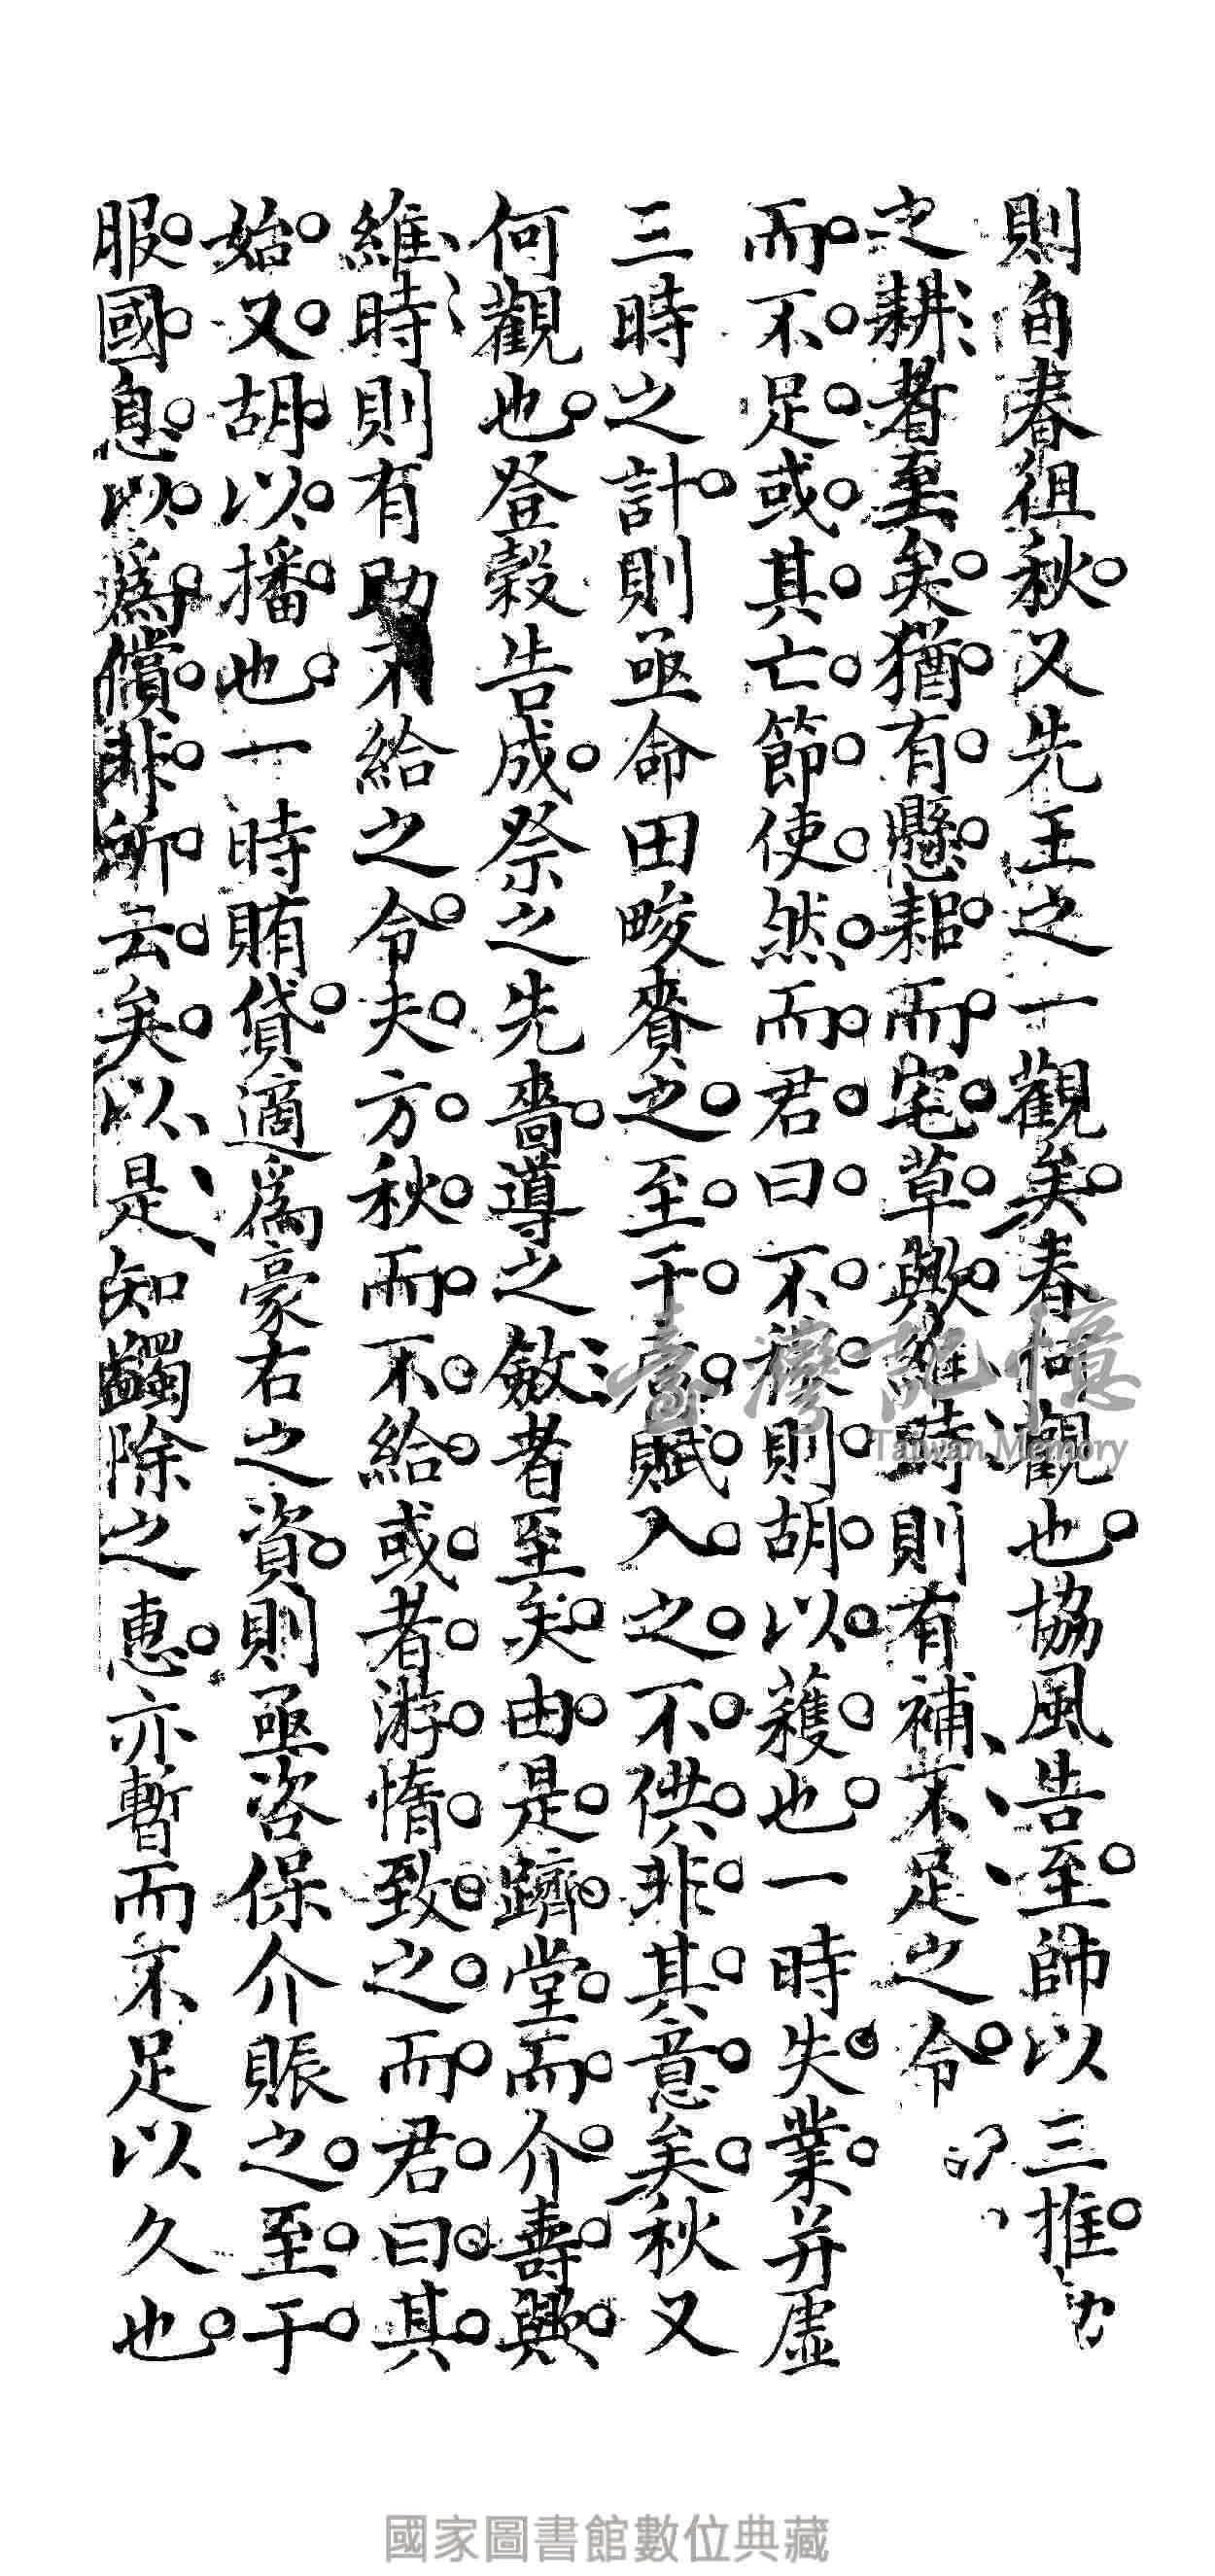 則自春徂秋又先王之一觀矣春何觀也協風告至師以三推勸
之耕者至矣猶有懸耜而宅草歟維時則有補不足之令
而不足或其亡節使然而君曰不穫則胡以穫也一時失業并虛
三時之計則亟命田畯賚之至于賦入之不供非其意矣秋又
何觀也登穀告成祭之先嗇導之斂者至矣由是躋堂而介壽歟
維時則有助不給之令夫方秋而不給或者游惰致之而君曰其
始又胡以播也一時賄貸適為豪右之資則亟咨保介賑之至于
服國息以為償非所云矣以是知蠲除之惠亦暫而不足以久也
臺灣記憶
Taiwan Memory
國家圖書館數位典藏